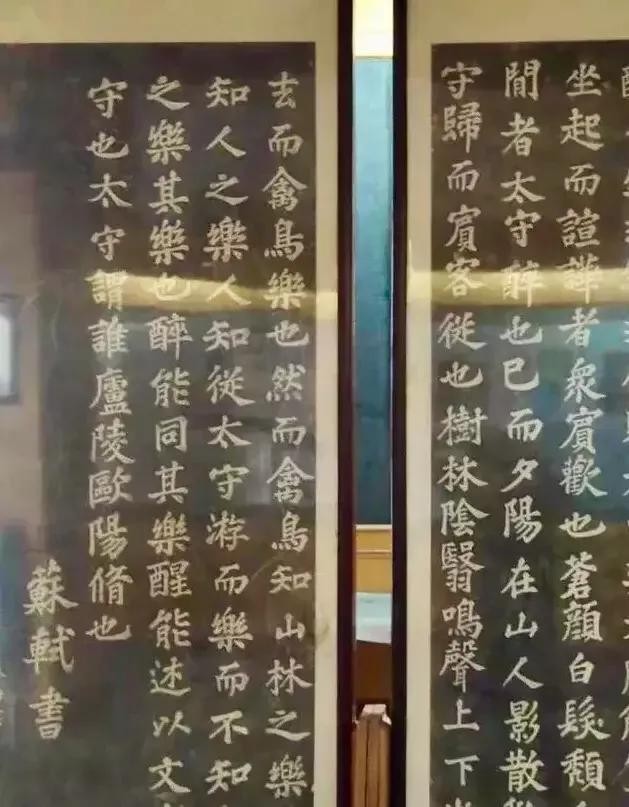 坐起而諠譁者眾賓歡也蒼顏白髮頹
間者太守醉也已而夕陽在山人影散
守歸而賓客從也樹林陰翳鳴聲上下
去而禽鳥樂也然而禽鳥知山林之樂
知人之樂人知從太守游而樂而不知
之樂其樂也醉能同其樂醒能述以文
守也太守謂誰廬陵歐陽脩也
蘇軾書